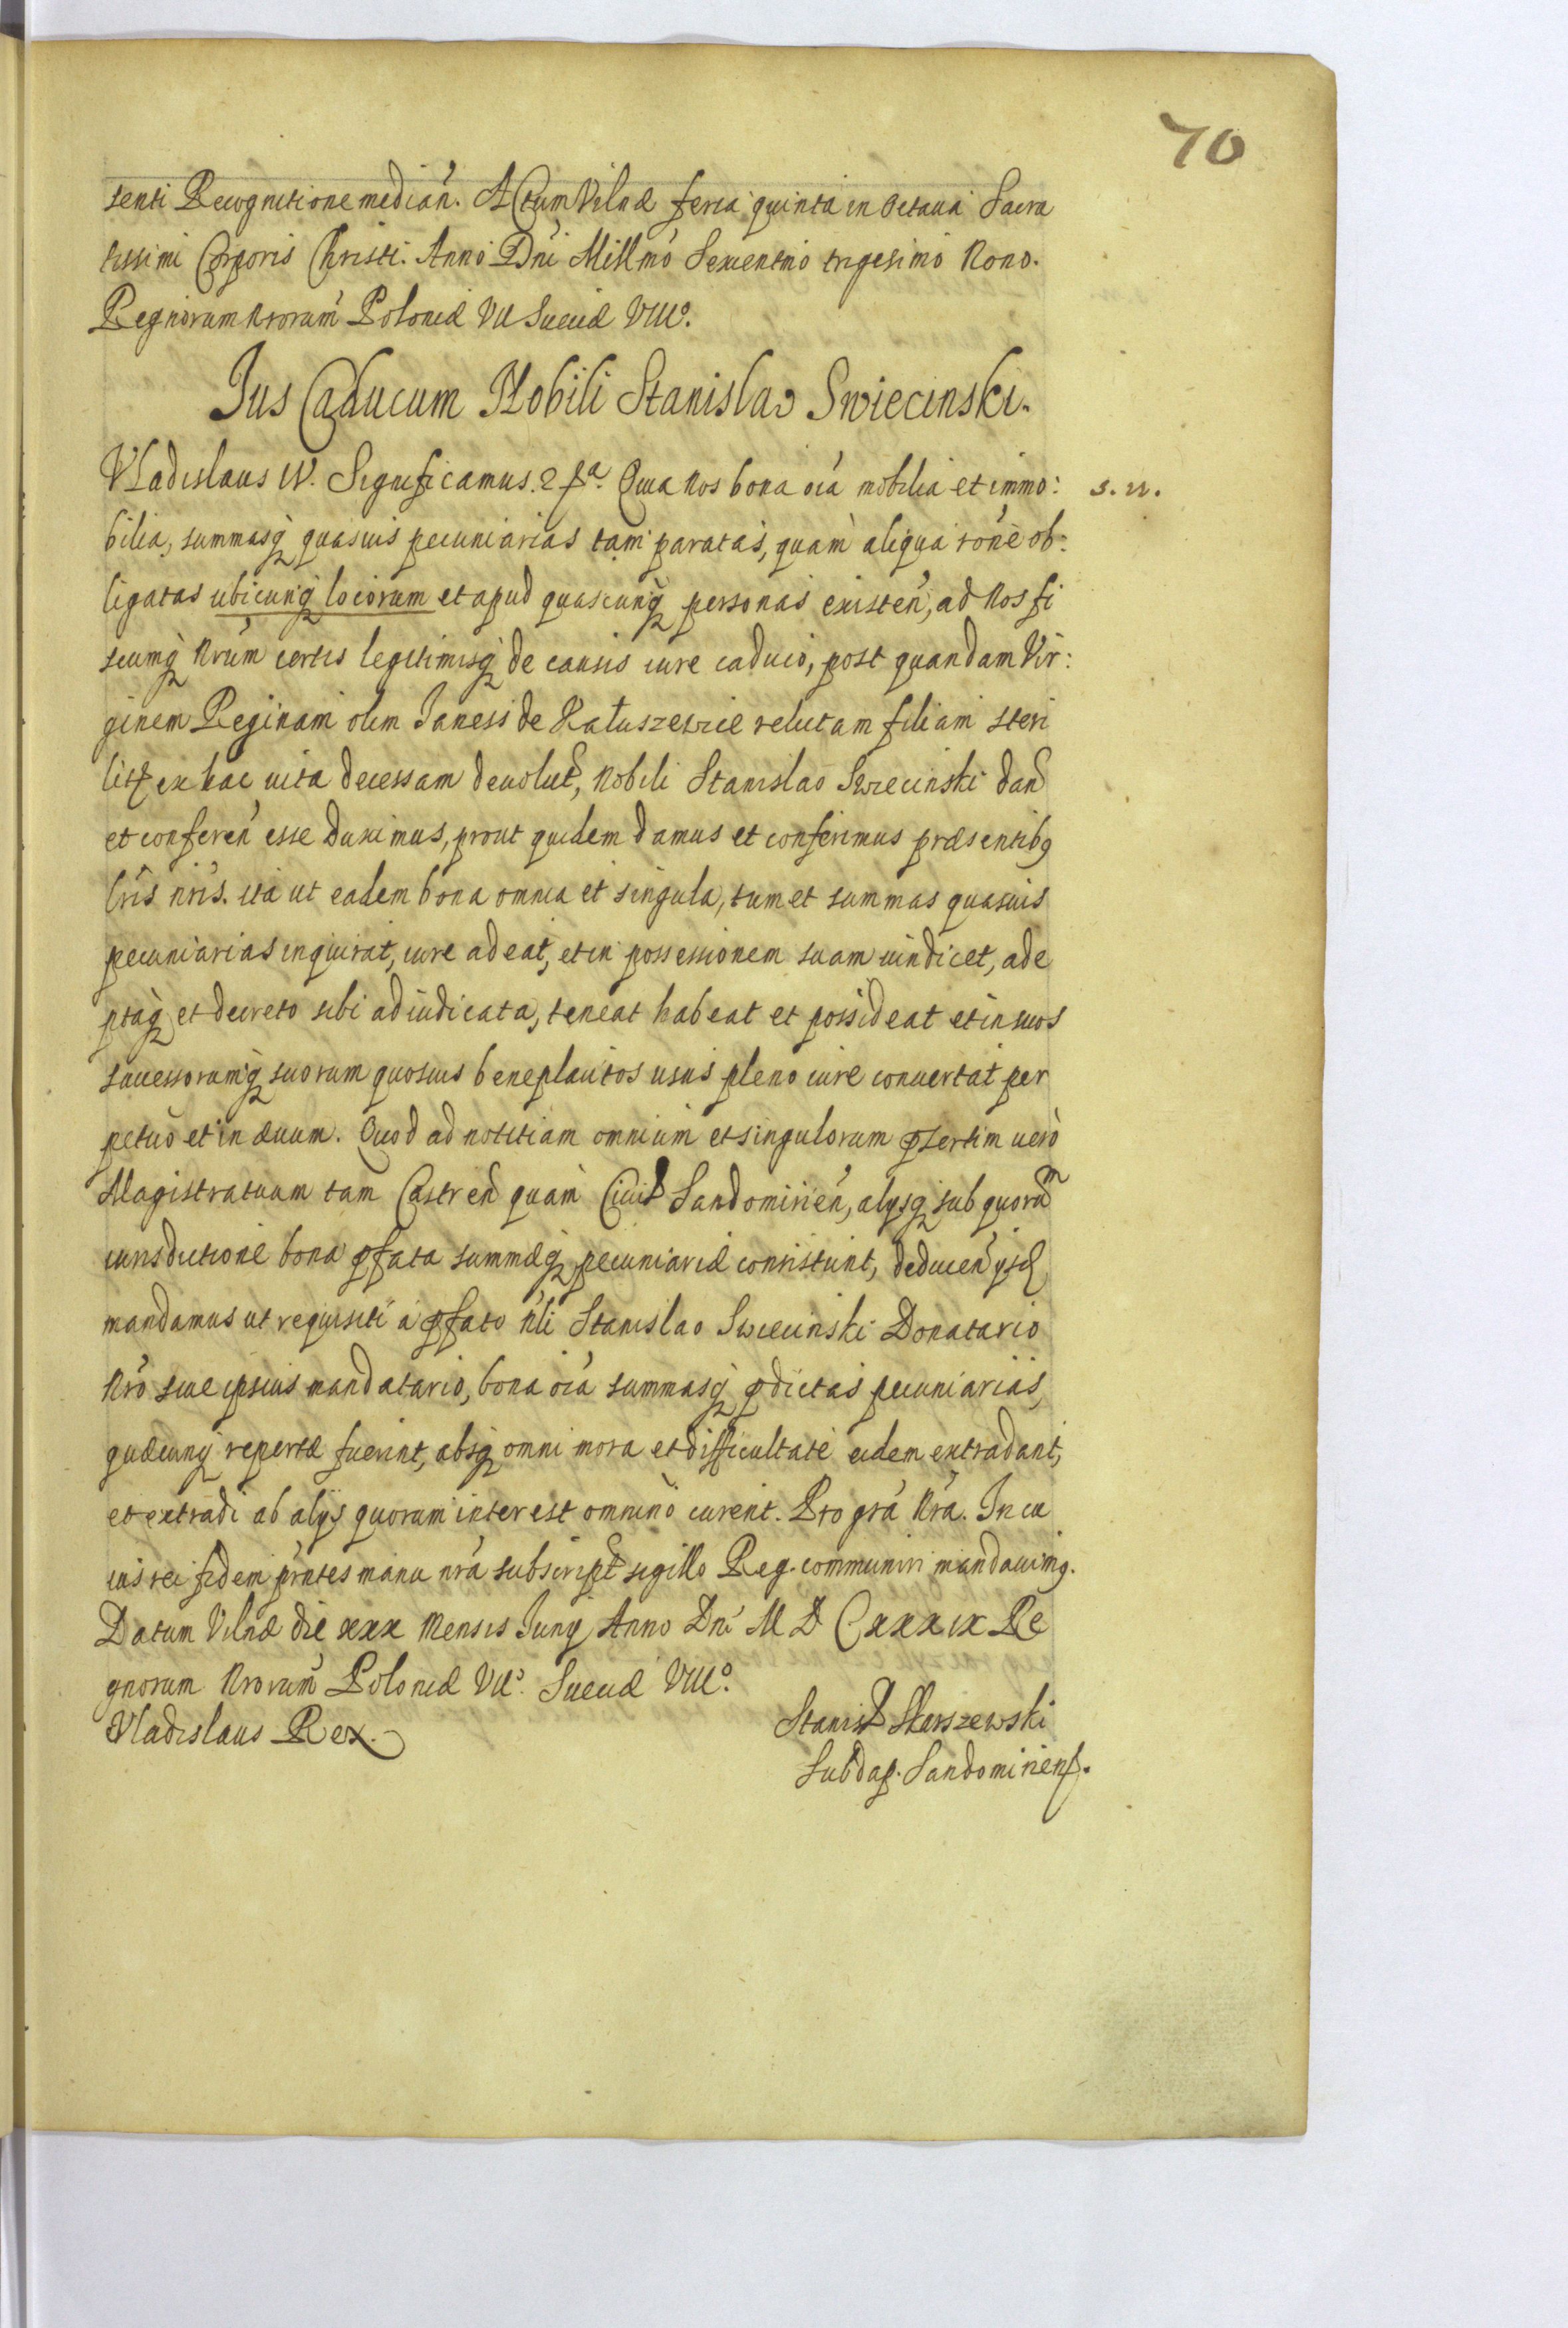 70
senti Recognitione median. Actum Vilnæ feria quinta in Octaua Sacra
tissimi Corporis Christi. Anno Dni Millmo Sexcentmo trigesimo Nono.
Regnorum Nrorum Poloniæ VII Sueciæ VIIIº.
Jus Caducum Nobili Stanislao Swiecinski.
Vladislaus IV. Significamus. Quia Nos bona oia mobilia et immo: s. n.
bilia, summasq quasuis pecuniarias tam paratas, quàm aliqua rone ob:
ligatas ubicunq locorum et apud quascunq personas existen, ad Nos fi
scumq Nrum certis legitimisq de causis iure caduco, post quandam Vir:
ginem Reginam olim Janesii de Kałuszewice relictam filiam steri
lit ex hac uita decessam deuolut, Nobili Stanislao Swiecinski dan
et conferen esse duximus, prout quidem damus et conferimus præsentibq
lris nris. ita ut eadem bona omnia et singula, tum et summas quasuis
pecuniarias inquirat, iure adeat, et in possessionem suam uindicet, ade
ptaq et decreto sibi adiudicata, teneat habeat et possideat et in suos
successorumq suorum quosuis beneplacitos usus pleno iure conuertat per
petuò et in æuum. Quod ad notitiam omnium et singulorum psertim uerò
Magistratuum tam Castren quàm Ciuil Sandomirien, alysq sub quorum
iurisdictione bona pfata summæq pecuniariæ consistunt, deducen ysd
mandamus ut requisiti a pfato Nli Stanislao Swiecinski Donatario
Nro siue ipsius mandatario, bona oia summasq pdictas pecuniarias,
quæcunq repertæ fuerint, absq omni mora et difficultate eidem extradant,
et extradi ab alys quorum interest omninò curent. Pro gra Nra. In cu
ius rei fidem prntes manu nra subscript sigillo Reg. communiri mandauimq.
Datum Vilnæ die xxx Mensis Juny Anno Dni M D CxxxIx Re
gnorum Nrorum Poloniæ VIIº. Sueciæ VIIIº.
Vladislaus Rex. Stanisl Skarszewski
Subdap. Sandomiriens.